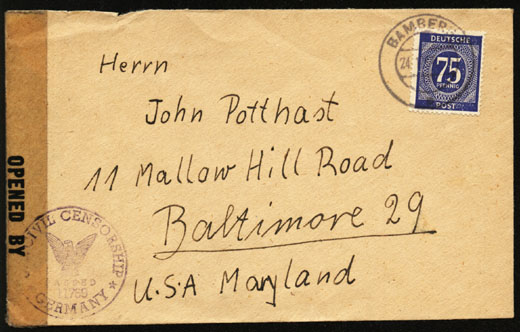 Herrn
John Potthast
11 Mallow Hill Road
Baltimore 29
U.S.A Maryland
BAMBERG
24
DEUTSCHE
75
PFENNIG
POST
OPENED BY
CIVIL CENSORSHIP
PASSED
GERMANY